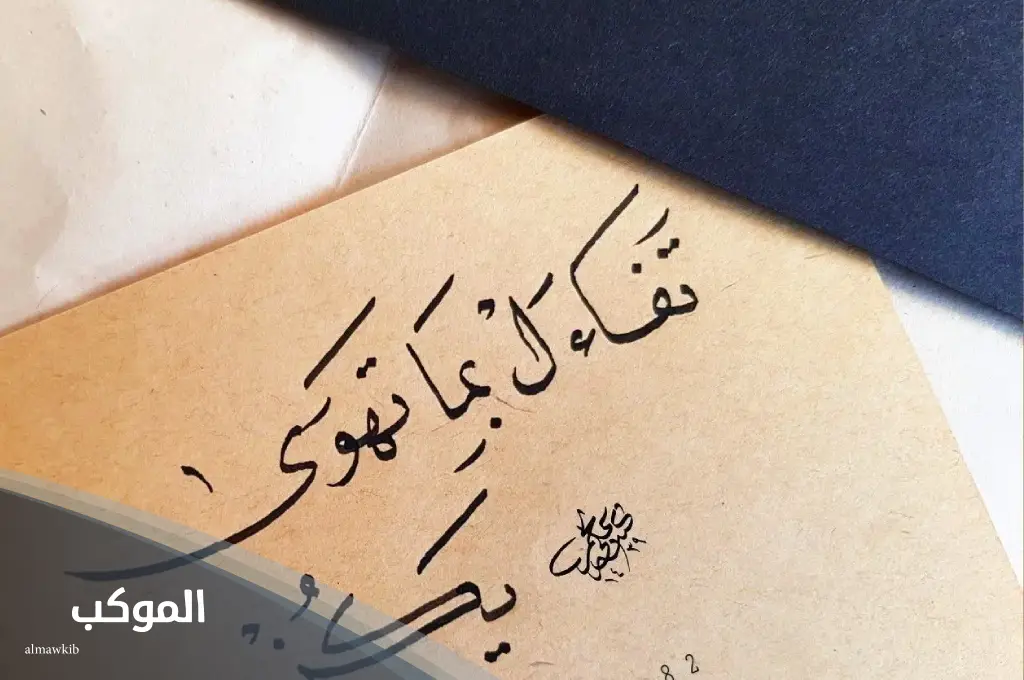 تَفاءلْ بِمَا تهوى
يكنْ
8 2
الموكب
almawkib